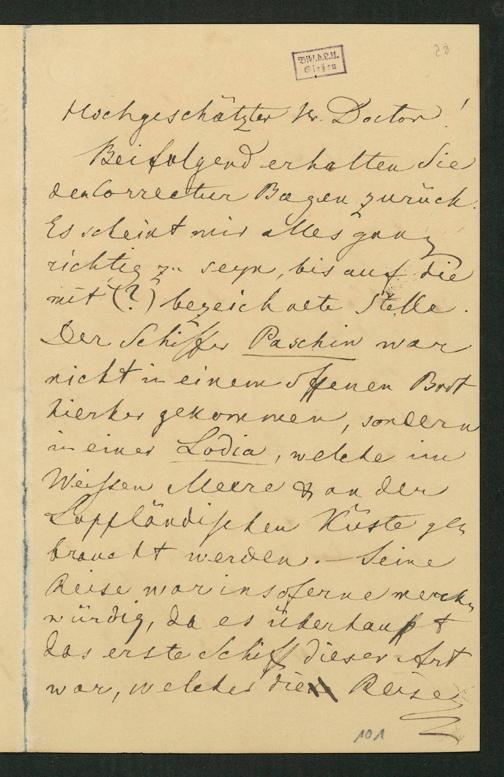 28
Hochgeschätzter Hr. Doctor!
Beifolgend erhalten Sie
den Correctur Bogen zurück.
Es scheint mir alles ganz
richtig zu seyn, bis auf die
mit (?) bezeichnete Stelle.
Der Schiffer Paschin war
nicht in einem offenen Boot
hierher gekommen, sondern
in einer Lodia, welche im
Weissen Meere & an der
Lappländischen Küste ge
braucht werden. – Seine
Reise war insoferne merck
würdig, da es überhaupt
das erste Schiff dieser Art
war, welches die Reise
101